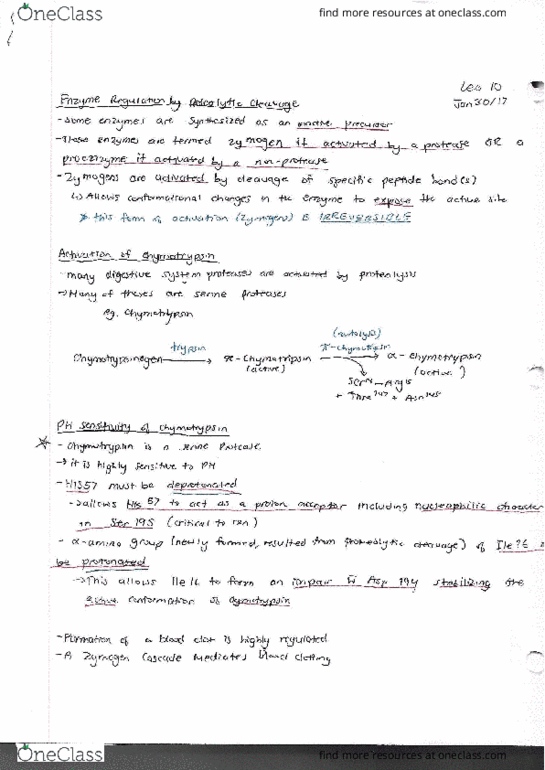 OneClass
find more resources at oneclass.com
Lec 10
Jan 30/17
Enzyme Regulation by Proteolytic Cleavage
- Some enzymes are synthesized as an inactive precursor
- These enzymes are termed zymogen if activated by a protease OR a
proenzyme if activated by a non-protease
- Zymogens are activated by cleavage of specific peptide bond(s)
↳ Allows conformational changes in the enzyme to expose the active site
* this form of activation (zymogens) is IRREVERSIBLE
Activation of chymotrypsin
- many digestive system proteases are activated by proteolysis
→ Many of theses are serine proteases
eg. Chymotrypsin
(autolysis)
trypsin π-chymotrypsin
Chymotrypsinogen → π-chymotripsin → α-chymotrypsin
(active) (active)
Ser14-Arg15
+ Thr147 + Asn148
PH sensitivity of chymotrypsin
- Chymotrypsin is a serine Protease.
→ it is highly sensitive to PH
- His57 must be deprotonated
→ allows His 57 to act as a proton acceptor including nucleophilic character
in Ser 195 (critical to rxn)
- α-amino group (newly formed, resulted from proteolytic cleavage) of Ile 16
be protonated
→ This allows Ile 16 to form an ion pair w Asp 194 stabilizing the
active conformation of chymotrypsin
- Formation of a blood clot is highly regulated
- A zymogen cascade mediates blood clotting
OneClass
find more resources at oneclass.com